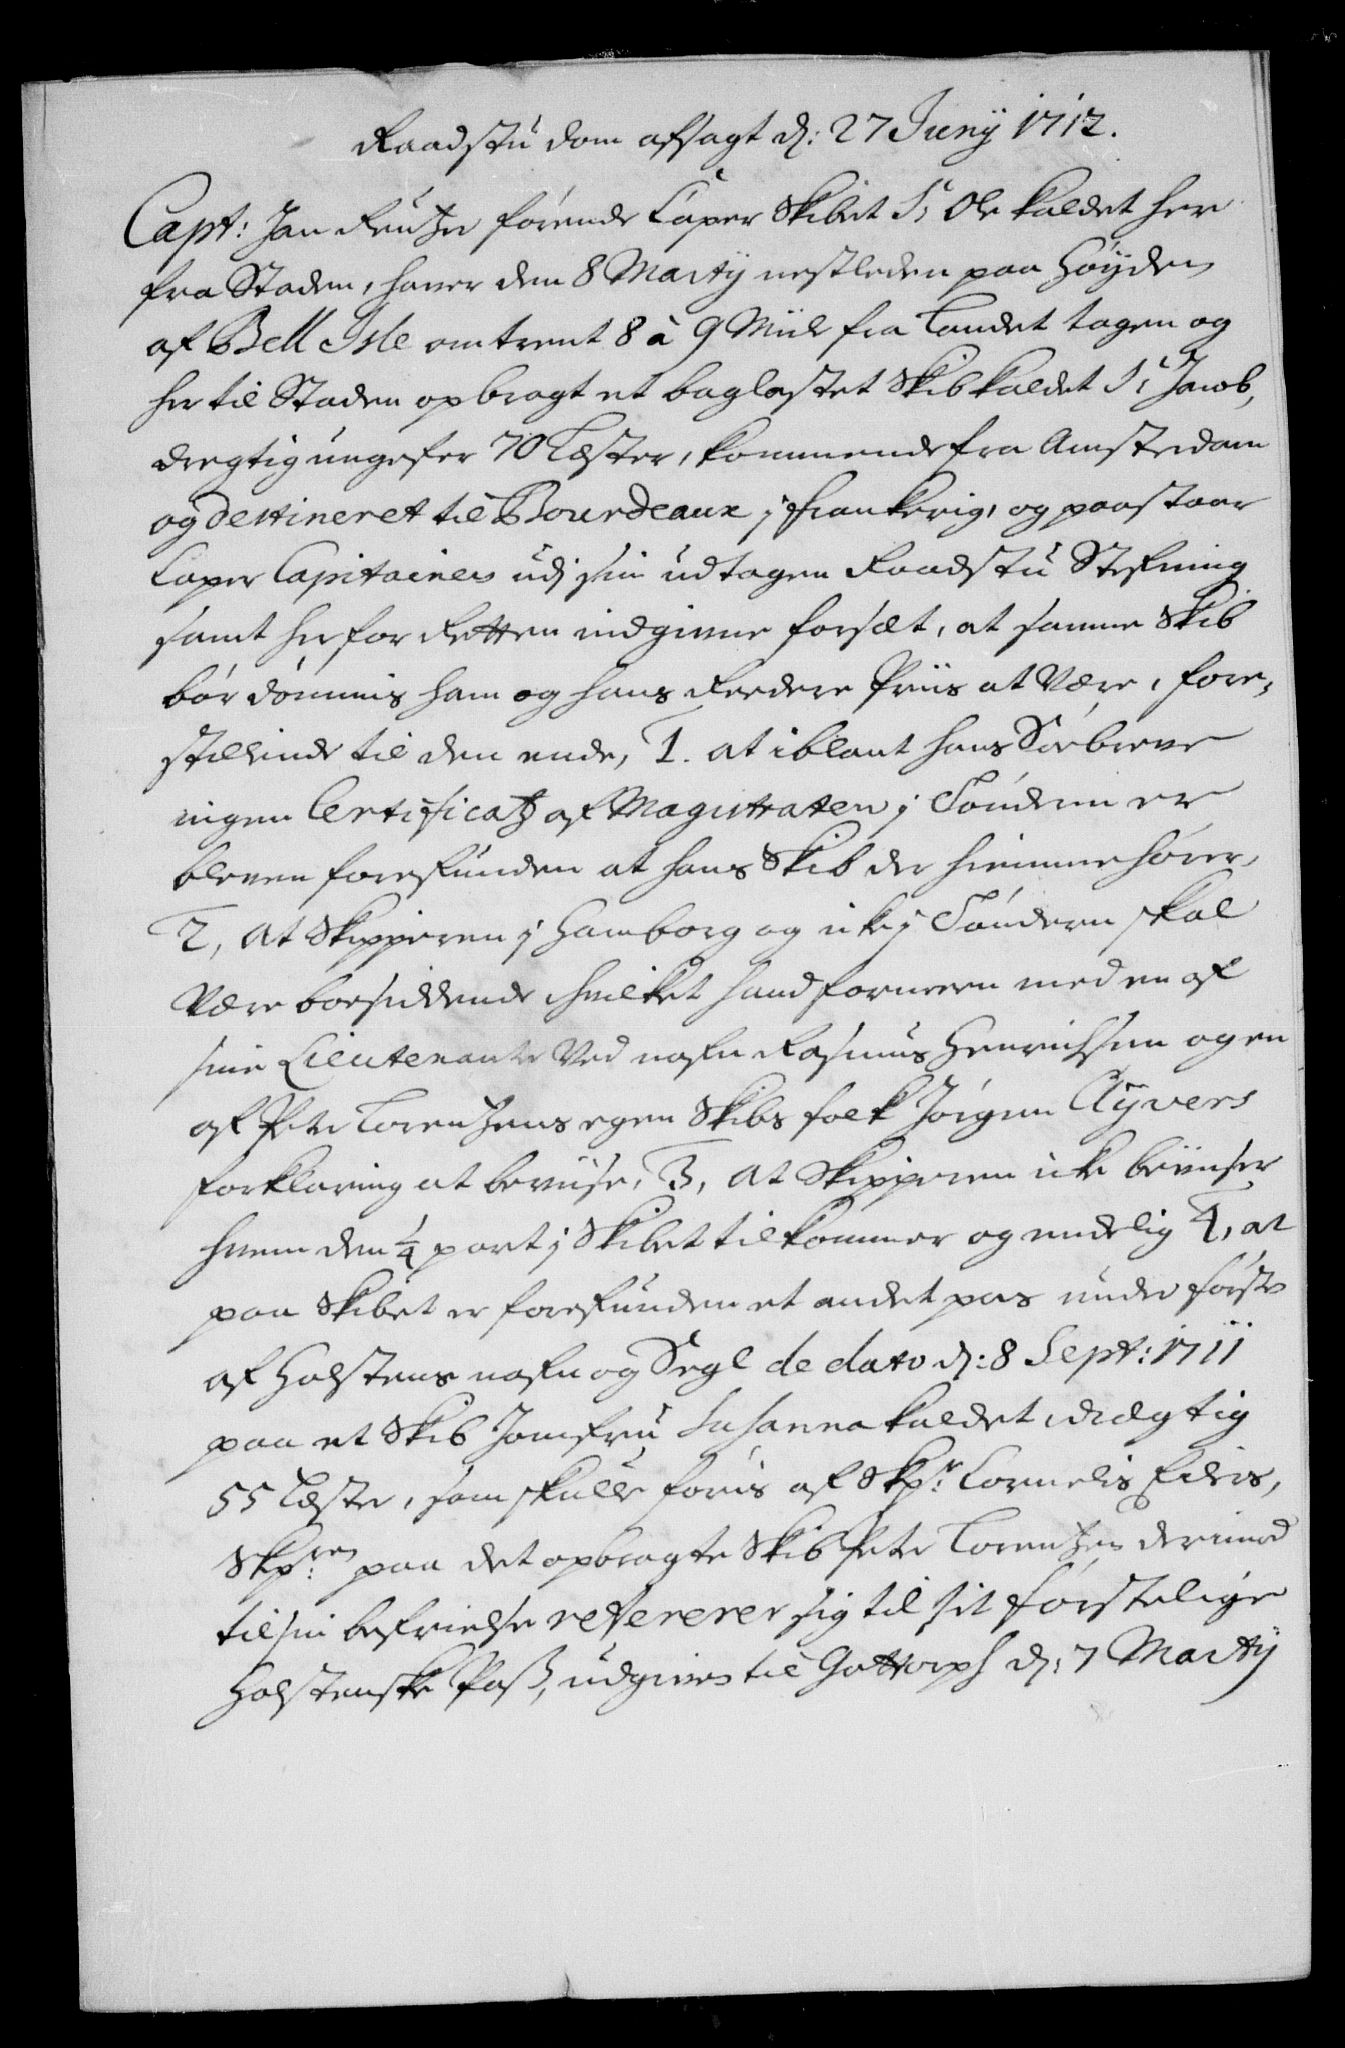 Raadstu dom afsagt d: 27 Junij 1712.
Capt: Jan Reutzer förende Caper Skibet St Ole kaldet her
fra Staden, haver dem 8 Martij nestleden paa Höijden
af Bell Isle omtrent 8 à 9 Miile fra Landet tagen og
her til Staden opbragt et baglastet Skib kaldet St Jacob,
dregtig ungefer 70 Læster, kommende fra Amsterdam
og destineret til Bourdeaux j frankerig, og paastaar
Caper Capitainen udj sin udtagen Raadstu Stefning
samt her for Retten indgivne forsæt, at samme Skib
bör dömmis ham og hans Reedere Priis at være, fore,
stillende til den ende, 1. at iblant hans Söebreve
ingen Certificatz af Magistraten j Tönderen er
bleven forefunden at hans Skib der hiemmehörer,
2, at Skipperen j Hamborg og icke j Tönderen skal
være boesiddende hvilket hand formeen med en af
sine Lieutenante ved nafn Rasmus Henrichsen og en
af Peter Lorentzens egen Skibs folk Jörgen Clyvers
forklaring at bevise, 3, at Skipperen icke beviiser
hvem den 1/4 part j Skibet tilkommer og endelig 4, at
paa Skibet er forefunden et andet pas under förste
af Holstens nafn og Segl de dato d: 8 Sept: 1711
paa et Skib Jomfru Susanna kaldet, drægtig
55 Læster, som skulle föris af Skpr: Cornelis Eilers,
Skpren: paa det opbragte Skib Peter Lorentzen derimod
til sin befrielse refererer sig til sit förstelige
Holstenske Pass, udgiven til Gottorph d: 7 Martij